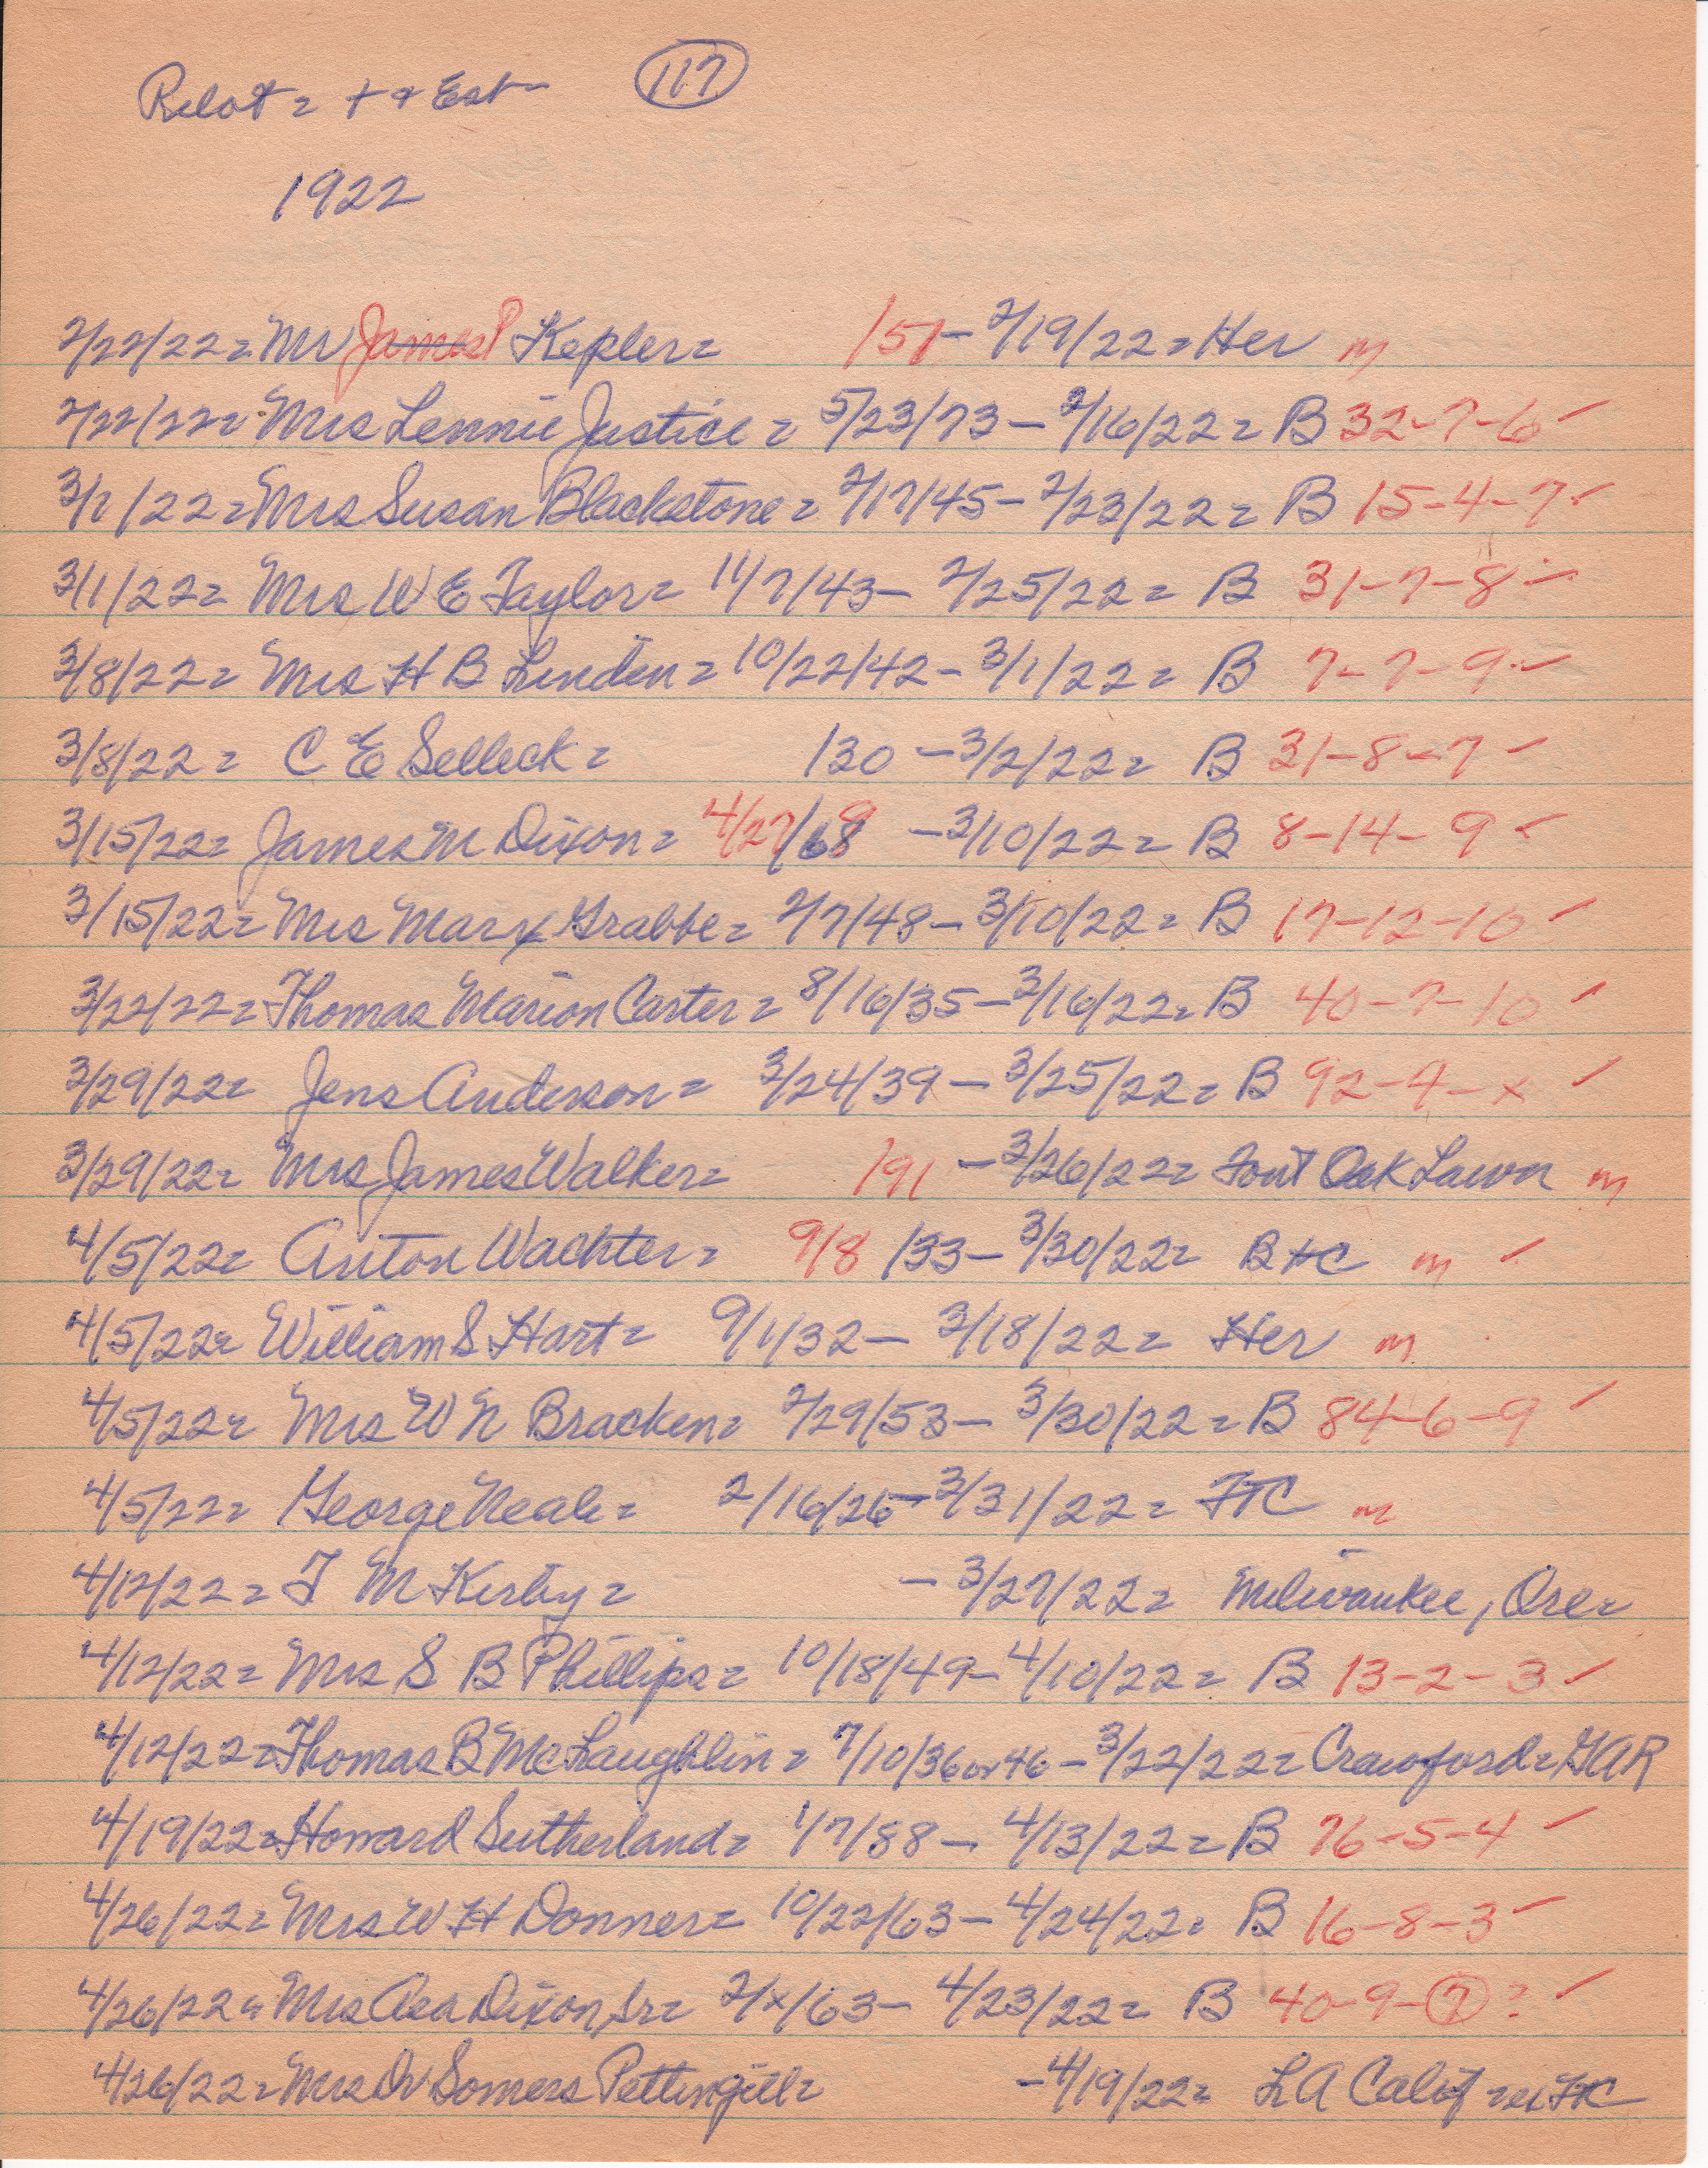 Relat = + & Est- (117)
1922
2/22/22 = Mr James P Kepler = /51 - 2/19/22 = Her m
2/22/22 = Mrs Lennie Justice = 5/23/73 - 2/16/22 = B 32-7-6 ✓
3/1/22 = Mrs Susan Blackstone = 2/17/45 - 2/23/22 = B 15-4-7 ✓
3/1/22 = Mrs W E Taylor = 11/7/43 - 2/25/22 = B 31-7-8 ✓
3/8/22 = Mrs H B Linden = 10/22/42 - 3/1/22 = B 7-7-9 ✓
3/8/22 = C E Selleck = /30 - 3/2/22 = B 31-8-7 ✓
3/15/22 = James M Dixon = 4/27/68 9 - 3/10/22 = B 8-14-9 ✓
3/15/22 = Mrs Mary Grabbe = 2/7/48 - 3/10/22 = B 17-12-10 ✓
3/22/22 = Thomas Marion Carter = 8/16/35 - 3/16/22 = B 40-7-10 ✓
3/29/22 = Jens Anderson = 3/24/39 - 3/25/22 = B 92-4-x ✓
3/29/22 = Mrs James Walker = /91 - 3/26/22 = Font Oak Lawn m
4/5/22 = Anton Wachter = 9/8 /33 - 3/30/22 = B HC m ✓
4/5/22 = William S Hart = 9/1/32 - 3/18/22 = Her m
4/5/22 = Mrs W N Bracken = 2/29/53 - 3/30/22 = B 84-6-9 ✓
4/5/22 = George Neale = 2/16/26 - 3/31/22 = FTC m
4/12/22 = T M Kirby = - 3/27/22 = Milwaukee, Ore =
4/12/22 = Mrs S B Phillips = 10/18/49 - 4/10/22 = B 13-2-3 ✓
4/12/22 = Thomas B McLaughlin = 7/10/36 or 46 - 3/22/22 = Crawford = GAR
4/19/22 = Howard Sutherland = 1/7/88 - 4/13/22 = B 76-5-4 ✓
4/26/22 = Mrs W H Donner = 10/22/63 - 4/24/22 = B 16-8-3 ✓
4/26/22 = Mrs Asa Dixon, Sr = 2/x/63 - 4/23/22 = B 40-9-(7)? ✓
4/26/22 = Mrs Dr Somers Pettingill = - 4/19/22 = LA Calif